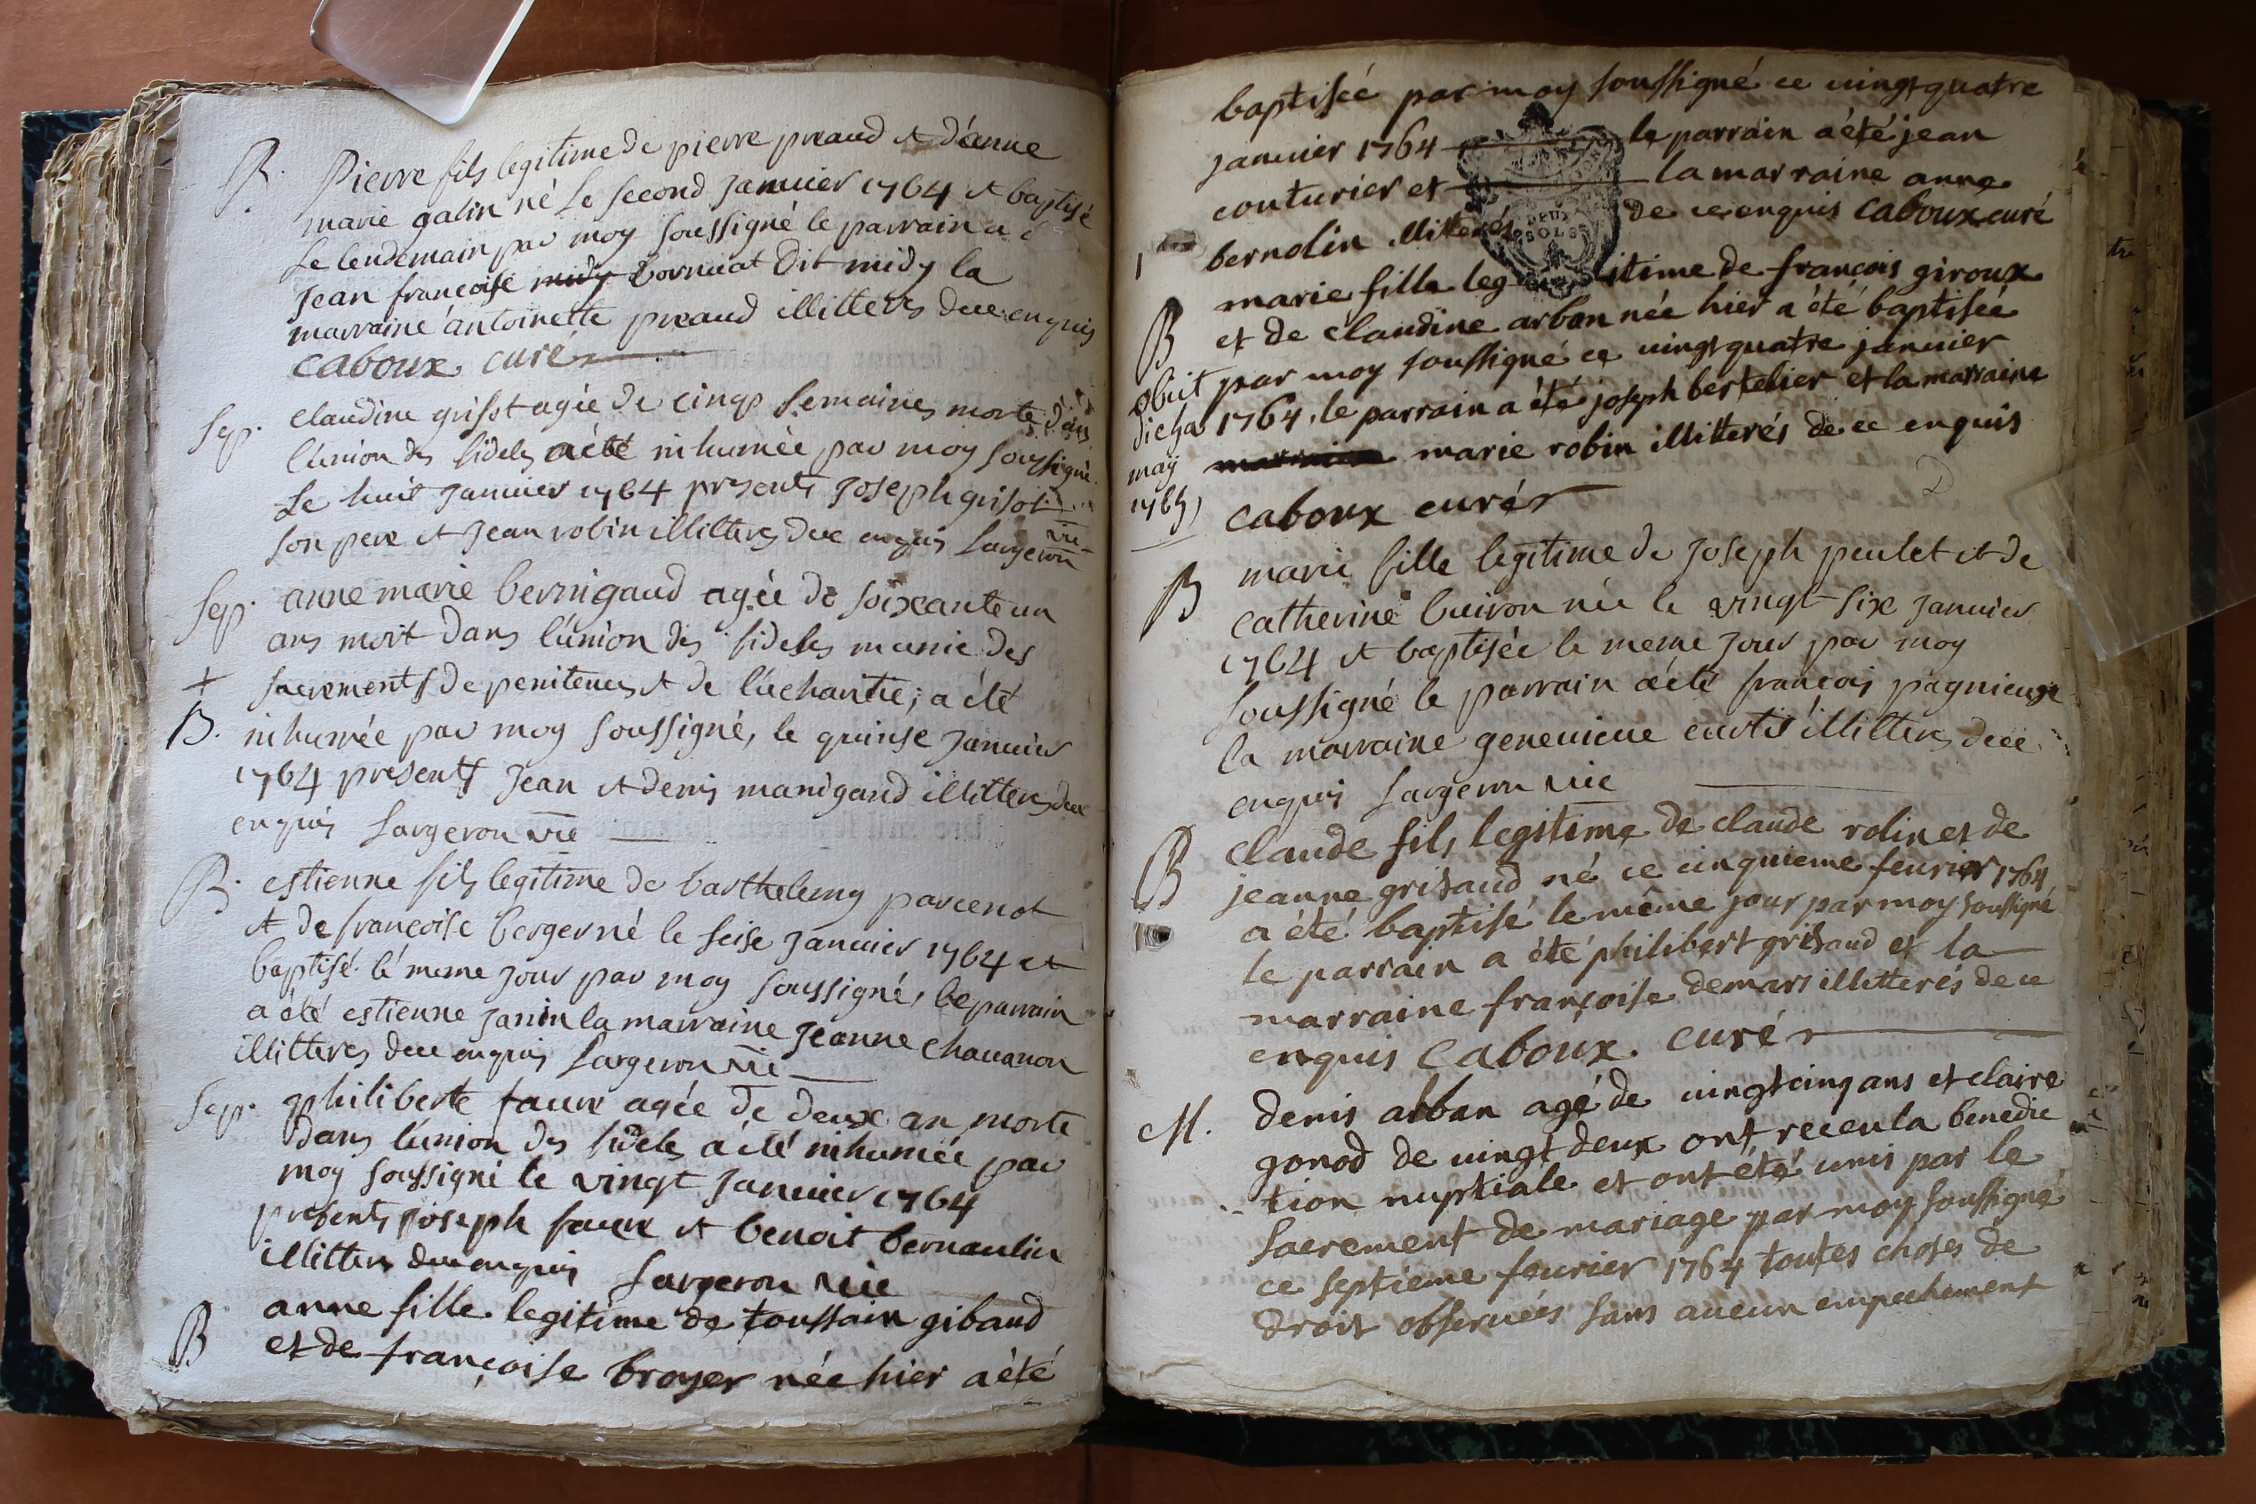 B. Pierre fils legitime de pierre preaud et d'anne
marie galin né le second Januier 1764 et baptisé
le lendemain par moy soussigné le parrain a
Jean françoise midy bornuat dit midy la
marraine antoinette preaud illitteres de ce enquis
caboux curé
Sep. Claudine grisot agée de cinq semaines morte dans
l'union des fideles a été inhumée par moy soussigné
le huit Januier 1764 presents Joseph grisot
son pere et Jean robin illitteres de ce enquis Largeron vic
Sep. anne marie bernigaud agée de soixante un
ans mort dans l'union des fideles munie des
+ sacrements de penitence et de l'uchantie; a été
B. inhumée par moy soussigné, le quinse Januier
1764 presents Jean et denis manigaud illitteres de ce
enquis Largeron vic
B. estienne fils legitime de barthelemy parcenot
et de françoise berger né le seise Januier 1764 et
baptisé le meme Jour par moy soussigné, le parrain
a été estienne Janin la marraine Jeanne chauanon
illitteres de ce enquis Largeron vic
Sep. philiberte faure agée de deux an morte
dans l'union des fideles a été inhumée par
moy soussigné le vingt Januier 1764
presents Joseph faure et benoit bernaulin
illitteres de ce enquis Largeron vic
B anne fille legitime de toussain gibaud
et de françoise broyer née hier a été
baptisée par moy soussigné ce uingt quatre
januier 1764 le parrain a été jean
couturier et la marraine anne
bernolin illitterés de ce enquis caboux curé
DEUX
SOLS
marie fille leg itime de françois giroux
B et de claudine arban née hier a été baptisée
obiit par moy soussigné ce uingt quatre januier
die 1764. le parrain a été joseph bertelier et la marraine
may marie robin illitterés de ce enquis
caboux curé
B marie fille legitime de Joseph peulet et de
catherine buiron née le vingt six Januier
1764 et baptisée le meme Jour par moy
soussigné le parrain a été françois pagnieux
la marraine geneuieue curtis illitteres de ce
enquis Largeron vic
B claude fils legitime de claude rolin et de
jeanne grisaud né ce cinquieme feurier 1764
a été baptisé le même jour par moy soussigné
le parrain a été philibert grisaud et la
marraine françoise demars illitterés de ce
enquis caboux. curé
M. denis alban agé de uingt cinq ans et claire
gonod de uingt deux ont receu la benedic
tion nuptiale et ont été unis par le
sacrement de mariage par moy soussigné
ce septieme feurier 1764 toutes choses de
droit obseruées sans aucun empechement